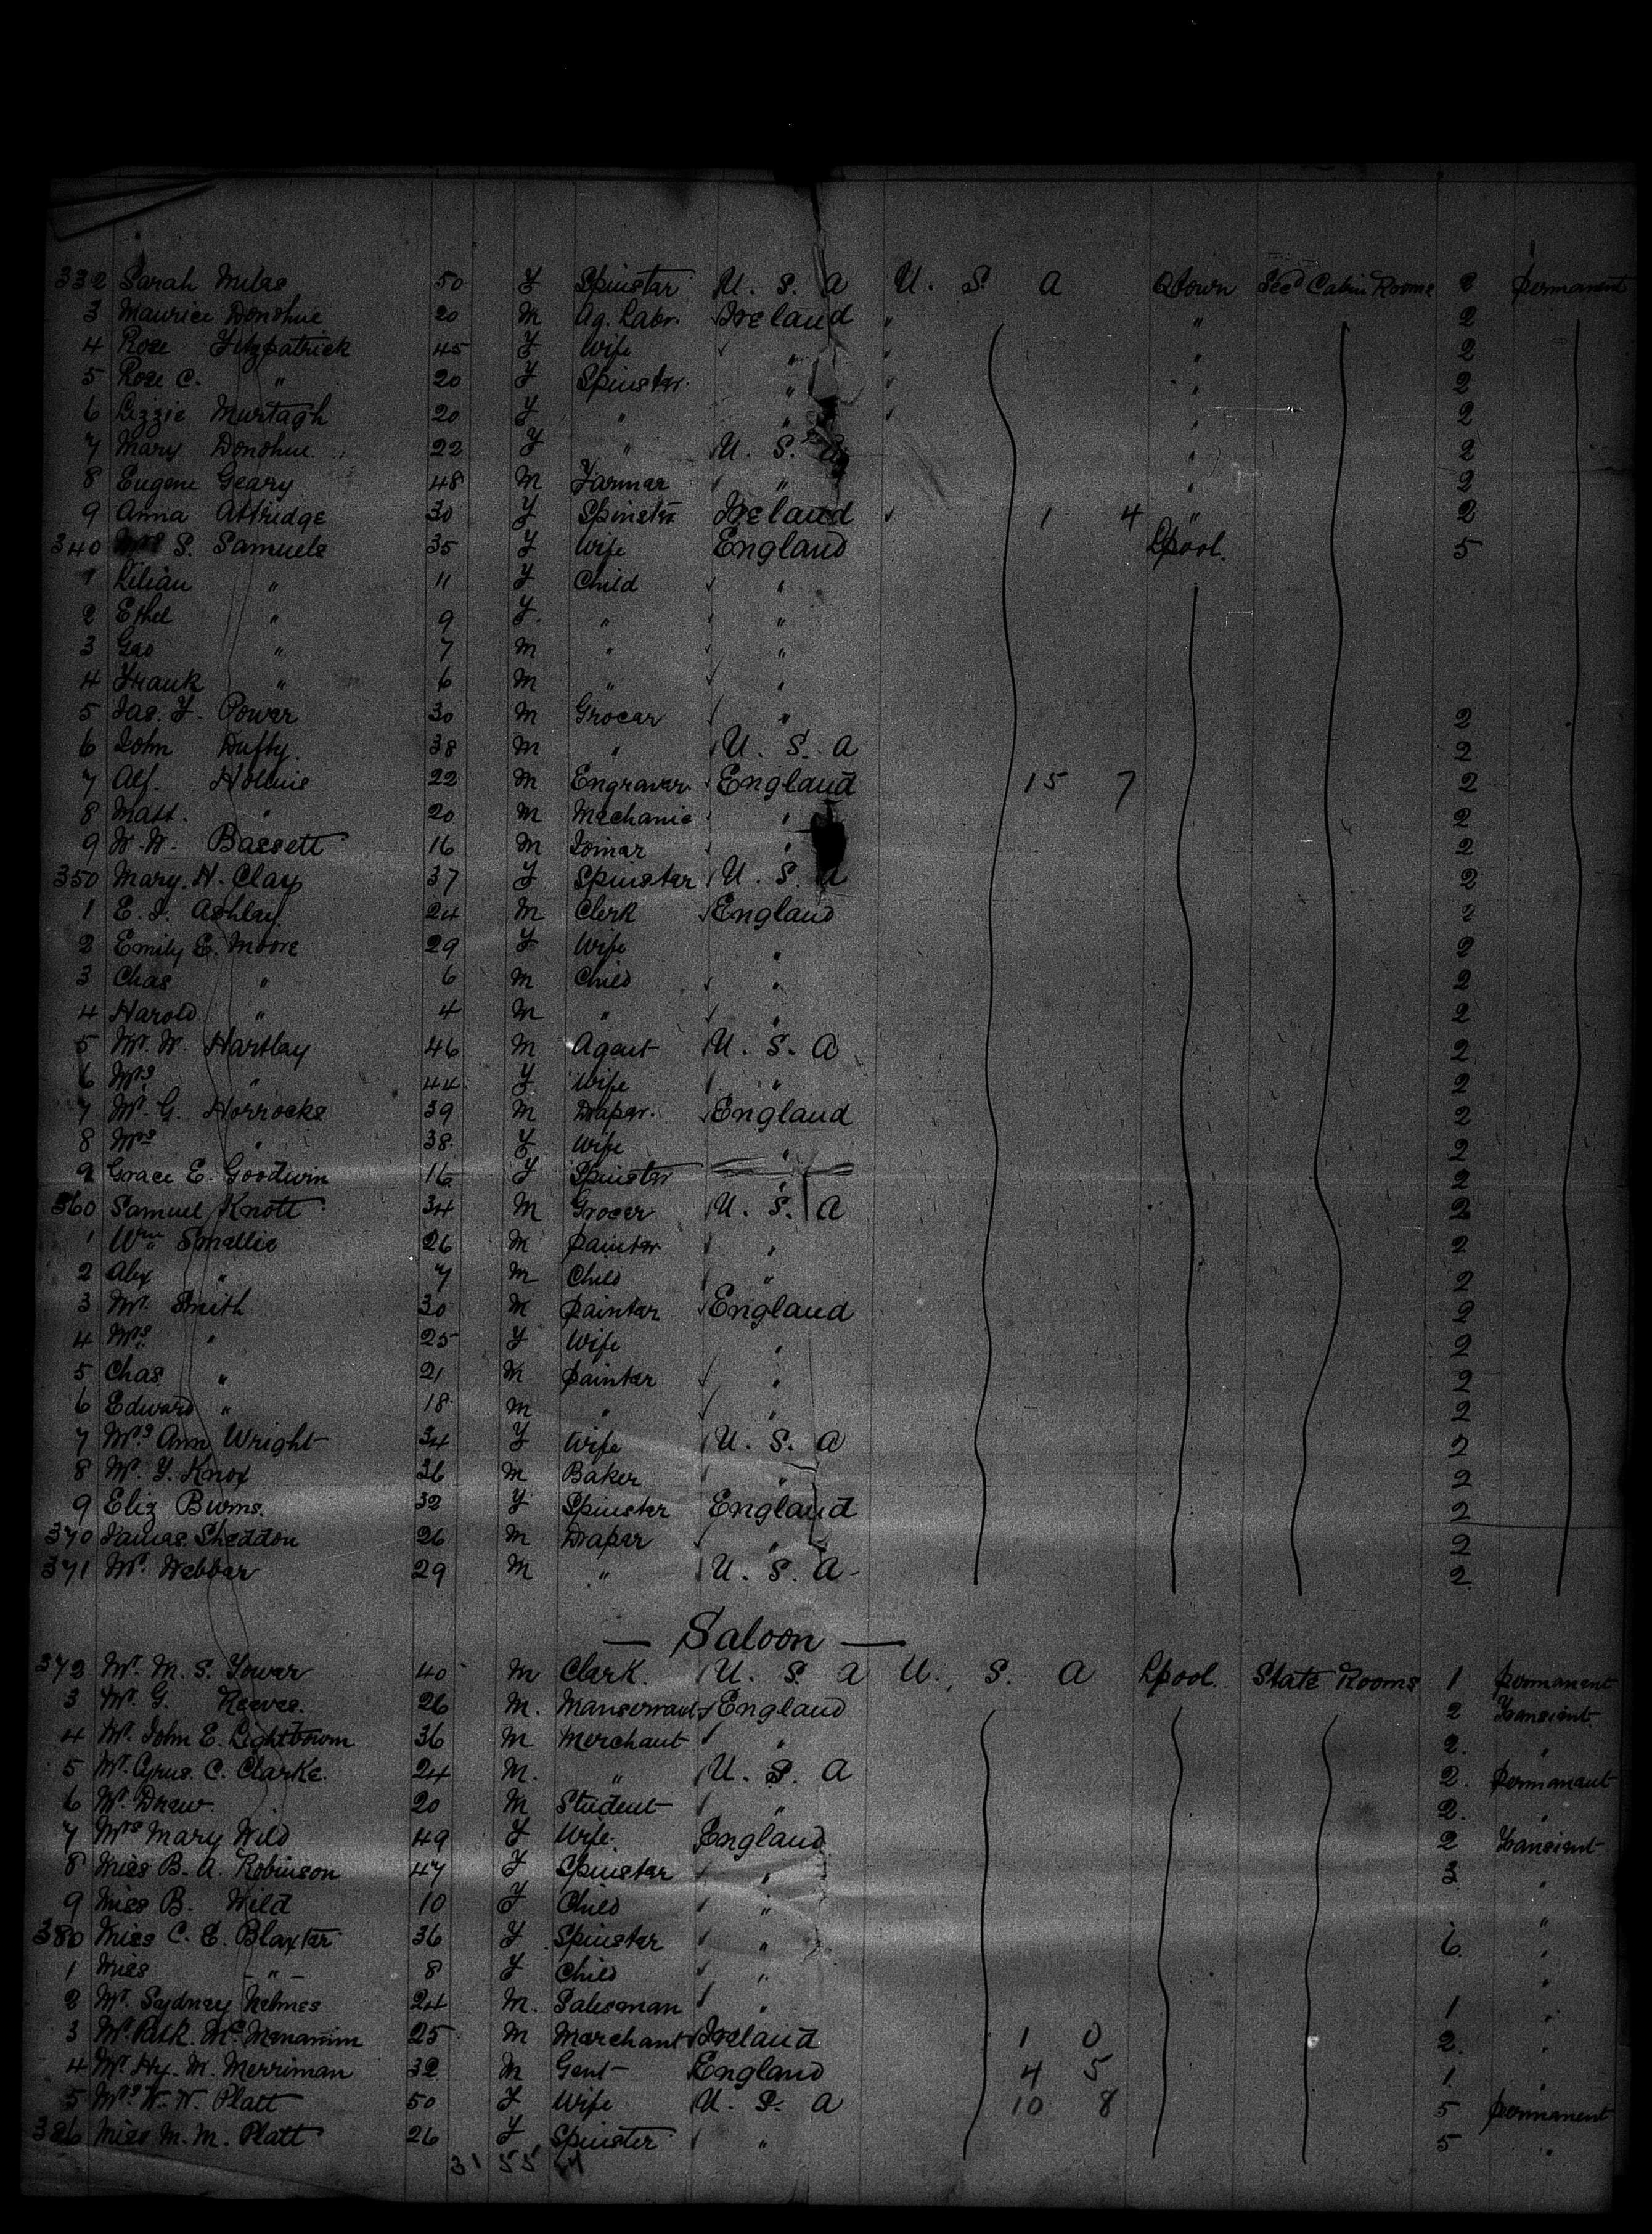 332 Sarah Milas 50 F Spinster U. S. A U. S. A Qtown Secd Cabin Rooms 2 permanent
3 Maurice Donohue 20 M Ag. Labr. Ireland " " 2
4 Rose Fitzpatrick 45 F Wife " " " 2
5 Rose C. " 20 F Spinster " " " 2
6 Lizzie Murtagh 20 F " " " " 2
7 Mary Donohue 22 F " U. S. A " 2
8 Eugene Geary 48 M Farmer " " 2
9 Anna Attridge 30 F Spinster Ireland 1 4 " 2
340 Mrs S. Samuels 35 F Wife England Lpool. 5
1 Lilian " 11 F Child "
2 Ethel " 9 F. " "
3 Geo " 7 M " "
4 Frank " 6 M " "
5 Jas. F. Power 30 M Grocer " 2
6 John Duffy 38 M " U. S. A 2
7 Alf. Hollins 22 M Engraver England 15 7 2
8 Matt. " 20 M Mechanic " 2
9 W. W. Bassett 16 M Joiner " 2
350 Mary. H. Clay 37 F Spinster U. S. A 2
1 E. J. Ashley 24 M Clerk England 2
2 Emily E. Moore 29 F Wife " 2
3 Chas " 6 M Child " 2
4 Harold " 4 M " " 2
5 Mr. W. Hartley 46 M Agent U. S. A 2
6 Mrs " 44 F Wife " 2
7 Mr. G. Horrocks 39 M Draper. England 2
8 Mrs " 38 F Wife " 2
9 Grace E. Goodwin 16 F Spinster " 2
360 Samuel Knott 34 M Grocer U. S. A 2
1 Wm Smellie 26 M painter " 2
2 Alex " 7 M Child " 2
3 Mr. Smith 30 M painter England 2
4 Mrs. " 25 F Wife " 2
5 Chas " 21 M painter " 2
6 Edward " 18 M " " 2
7 Mrs Ann Wright 34 F Wife U. S. A 2
8 Mr. Y. Knox 36 M Baker " 2
9 Eliz Burns. 32 F Spinster England 2
370 James Sheddon 26 M Draper " 2
371 Mr. Webber 29 M " U. S. A 2
— Saloon —
372 Mr. M. S. Tower 40 M Clerk. U. S. A U. S. A Lpool. State Rooms 1 permanent
3 Mr. G. Reeves. 26 M. Manservant England 2 Transient
4 Mr. John E. Lightbown 36 M Merchant " 2. "
5 Mr. Cyrus. C. Clarke. 24 M. " U. S. A 2. permanent
6 Mr. Drew 20 M Student " 2. "
7 Mrs Mary Wild 49 F Wife England 2 Transient
8 Miss B. A. Robinson 47 F Spinster " 3. "
9 Miss B. Wild 10 F Child " "
380 Miss C. E. Blaxter 36 F Spinster " 6. "
1 Miss - " - 8 F Child " "
2 Mr. Sydney Nelmes 24 M. Salesman " 1 "
3 Mr. Patk. Mc Menamim 25 M Merchant Ireland 1 0 2. "
4 Mr. Hy. M. Merriman 32 M Gent England 4 5 1 "
5 Mrs W. W. Platt 50 F Wife U. S. A 10 8 5 permanent
386 Miss M. M. Platt 26 F Spinster " 5 "
31 55